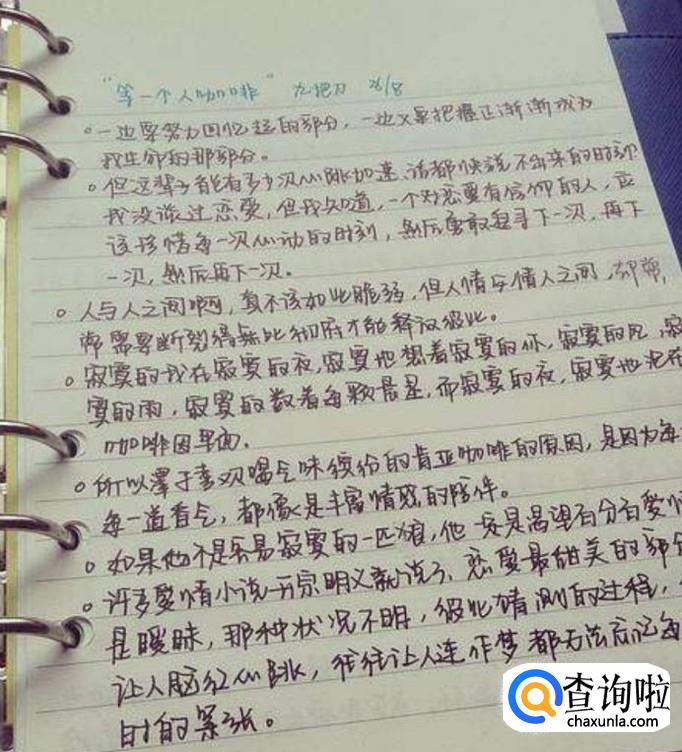 “等一个人咖啡” 九把刀 26/8
。一边要努力回忆起的部分,一边又要把握正渐渐成为
我生命的那部分。
。但这辈子能有多少次心跳加速、话都快说不出来的时刻
我没谈过恋爱,但我知道,一个对恋爱有信仰的人,应
该珍惜每一次心动的时刻,然后勇敢追寻下一次,再下
一次,然后再下一次。
。人与人之间啊,真不该如此脆弱,但人情与情人之间,却
常需要断裂得无比彻底才能释放彼此。
。寂寞的我在寂寞的夜,寂寞地想着寂寞的你,寂寞的风,寂
寞的雨,寂寞的数着每颗晨星,而寂寞的夜,寂寞地
咖啡因里面.
。所以泽于喜欢喝气味缤纷的肯亚咖啡的原因,是因为每
每一道香气,都像是丰富情感的陪伴。
。如果他不是容易寂寞的一匹狼,他一定是渴望百分百爱情
。许多爱情小说开宗明义就说了、恋爱最甜美的部分
是暧昧,那种状况不明,彼此猜测的过程,
让人脸红心跳,往往让人连作梦都无法忘记
时的紧张。
查询啦
chaxunla.com